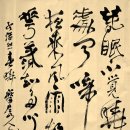 春眠不覺曉
處處聞啼
鳥夜來風雨
聲花落知多少
孟浩然春曉